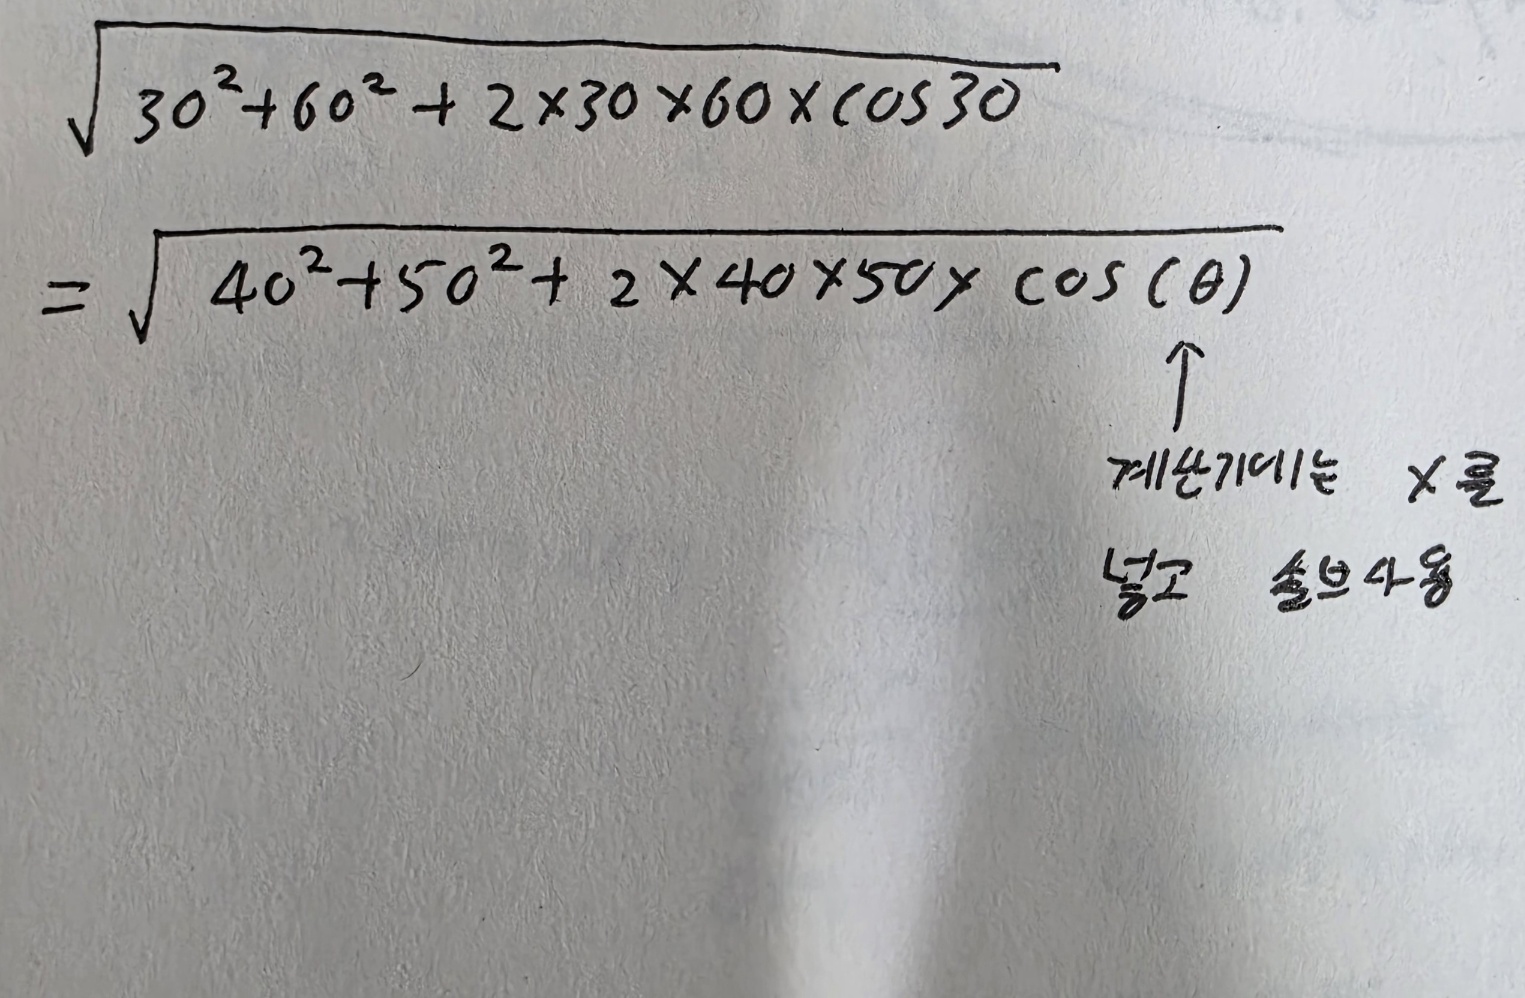 √30²+60²+2×30×60×cos30
=√40²+50²+2×40×50×cos(θ)
↑
계산기에는 X를
넣고 솔브사용